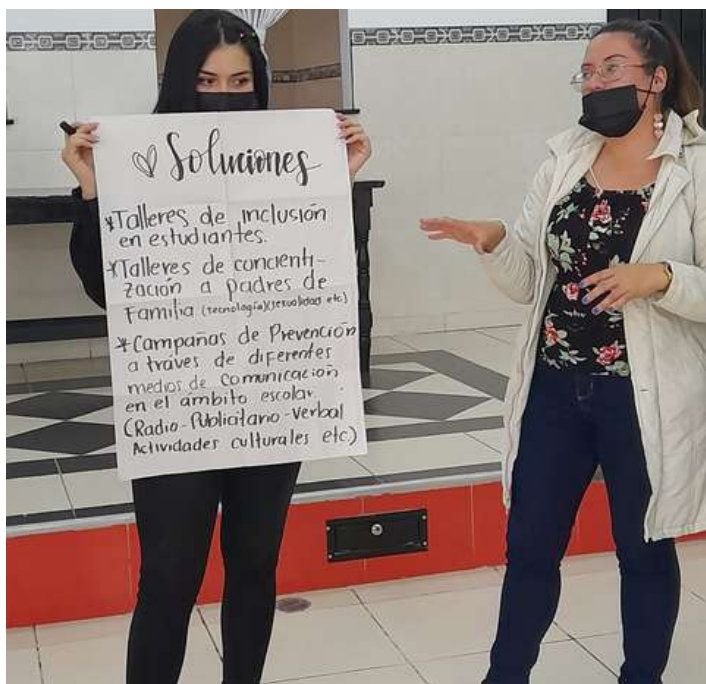 Soluciones
*Talleres de inclusión
en estudiantes.
*Talleres de concienti-
zación a padres de
Familia (tecnología)(sexualidad etc)
*Campañas de Prevención
a tráves de diferentes
medios de comunicación
en el ámbito escolar.
(Radio-Publicitario-Verbal
Actividades culturales etc.)